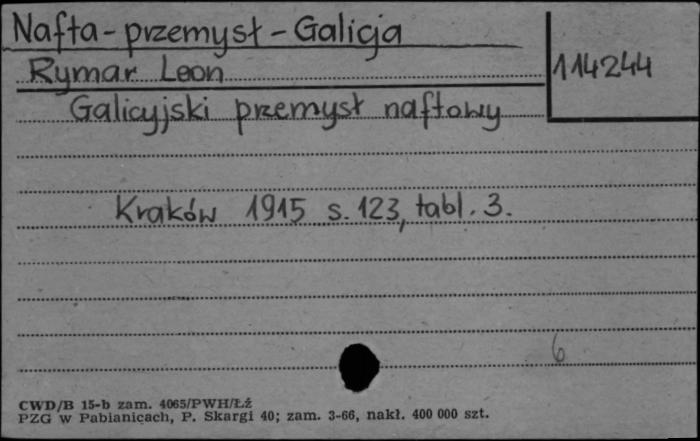 Nafta-przemysł-Galicja
114244
Rymar Leon
Galicyjski przemysł naftowy
Kraków 1915 s. 123, tabl. 3.
6
CWD/B 15-b zam. 4065/PWH/Łż
PZG w Pabianicach, P. Skargi 40; zam. 3-66, nakł. 400 000 szt.